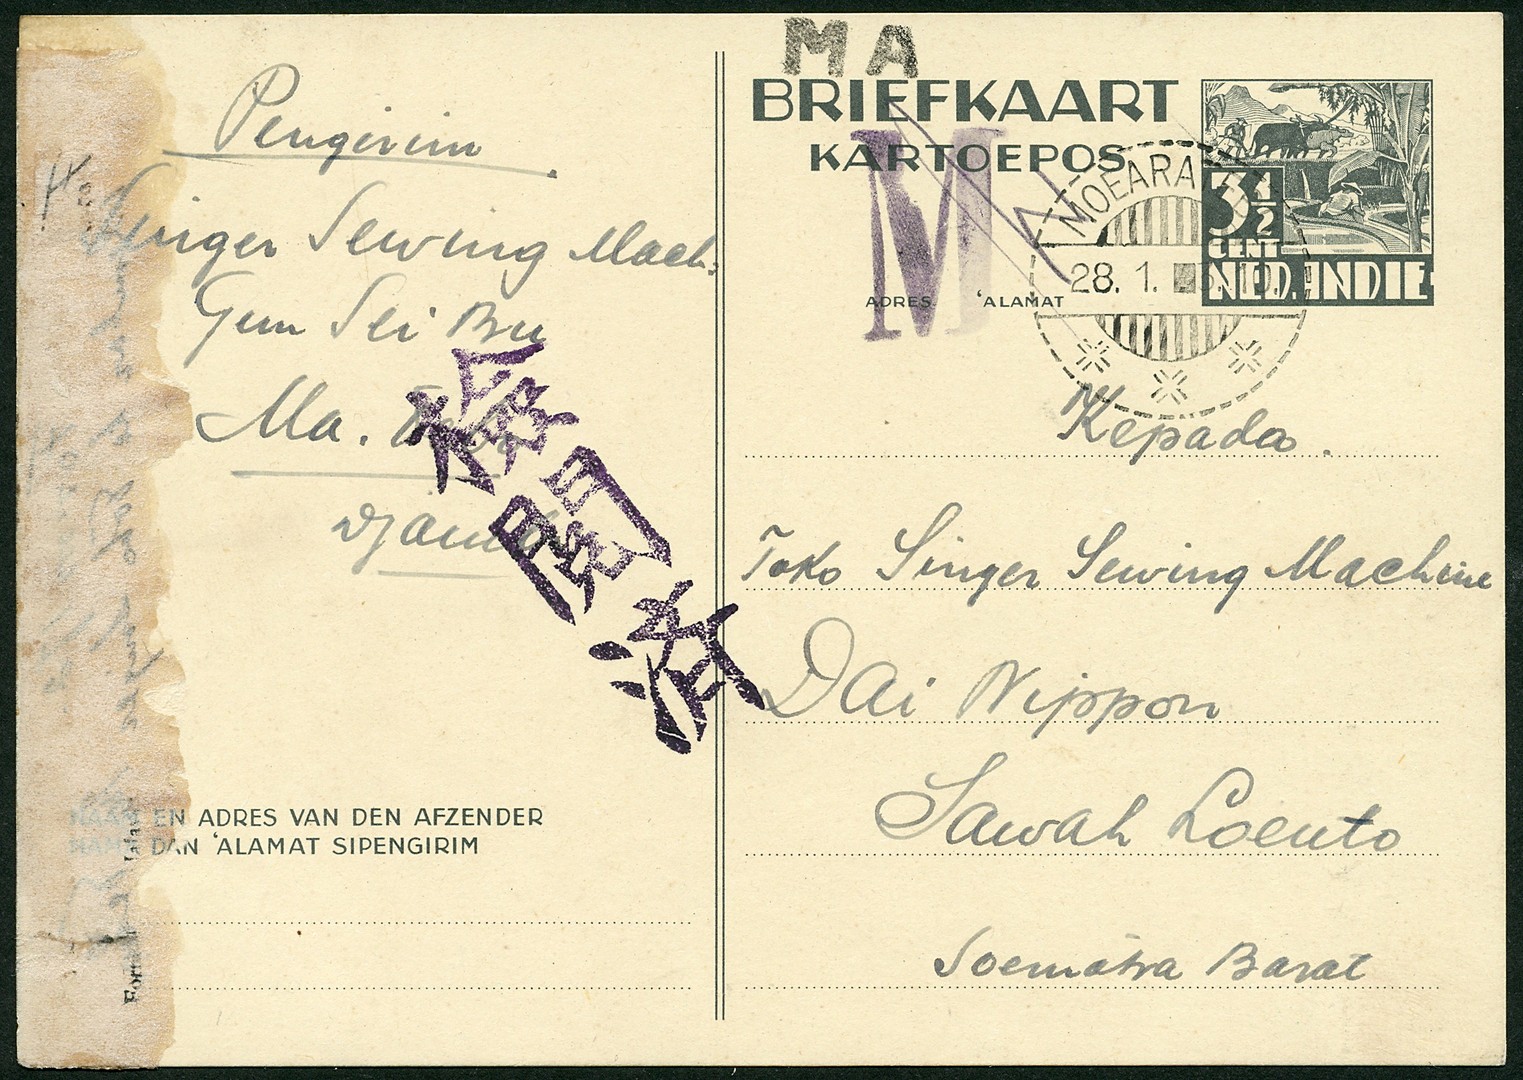 Pengirim
Singer Sewing Mach.
Gun Sei Bu
Ma.
Djambi
検閲済
NAAM EN ADRES VAN DEN AFZENDER
NAMA DAN 'ALAMAT SIPENGIRIM
MA
BRIEFKAART
KARTOEPOS
M
ADRES 'ALAMAT
MOEARA
28. 1.
3½
CENT
NED. INDIE
Kepada.
Toko Singer Sewing Machine
Dai Nippon
Sawah Loento
Soematra Barat